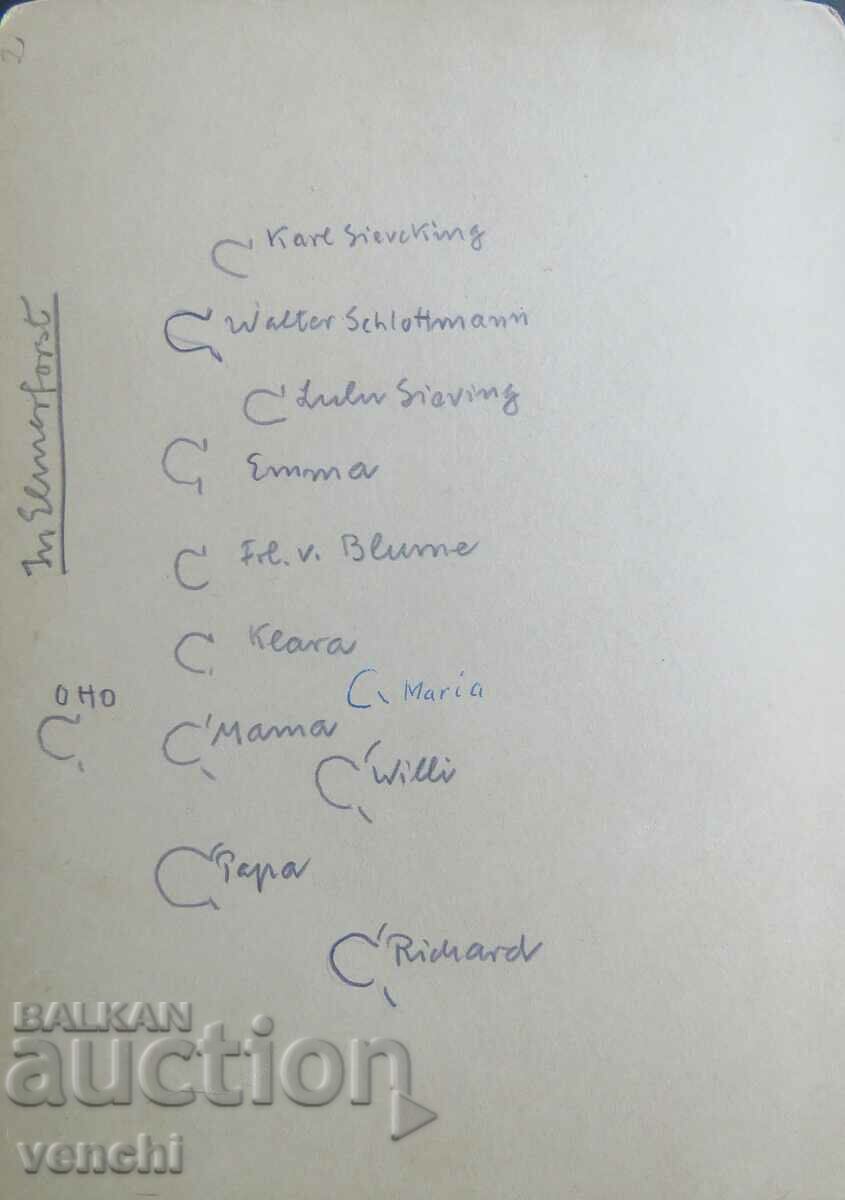 2
In Elmerforst
Karl Sievcking
Walter Schlottmann
Lulu Sieving
Emma
Frl. v. Blume
Klara
Maria
Otto
Mama
Willi
Papa
Richard
BALKAN
auction
venchi